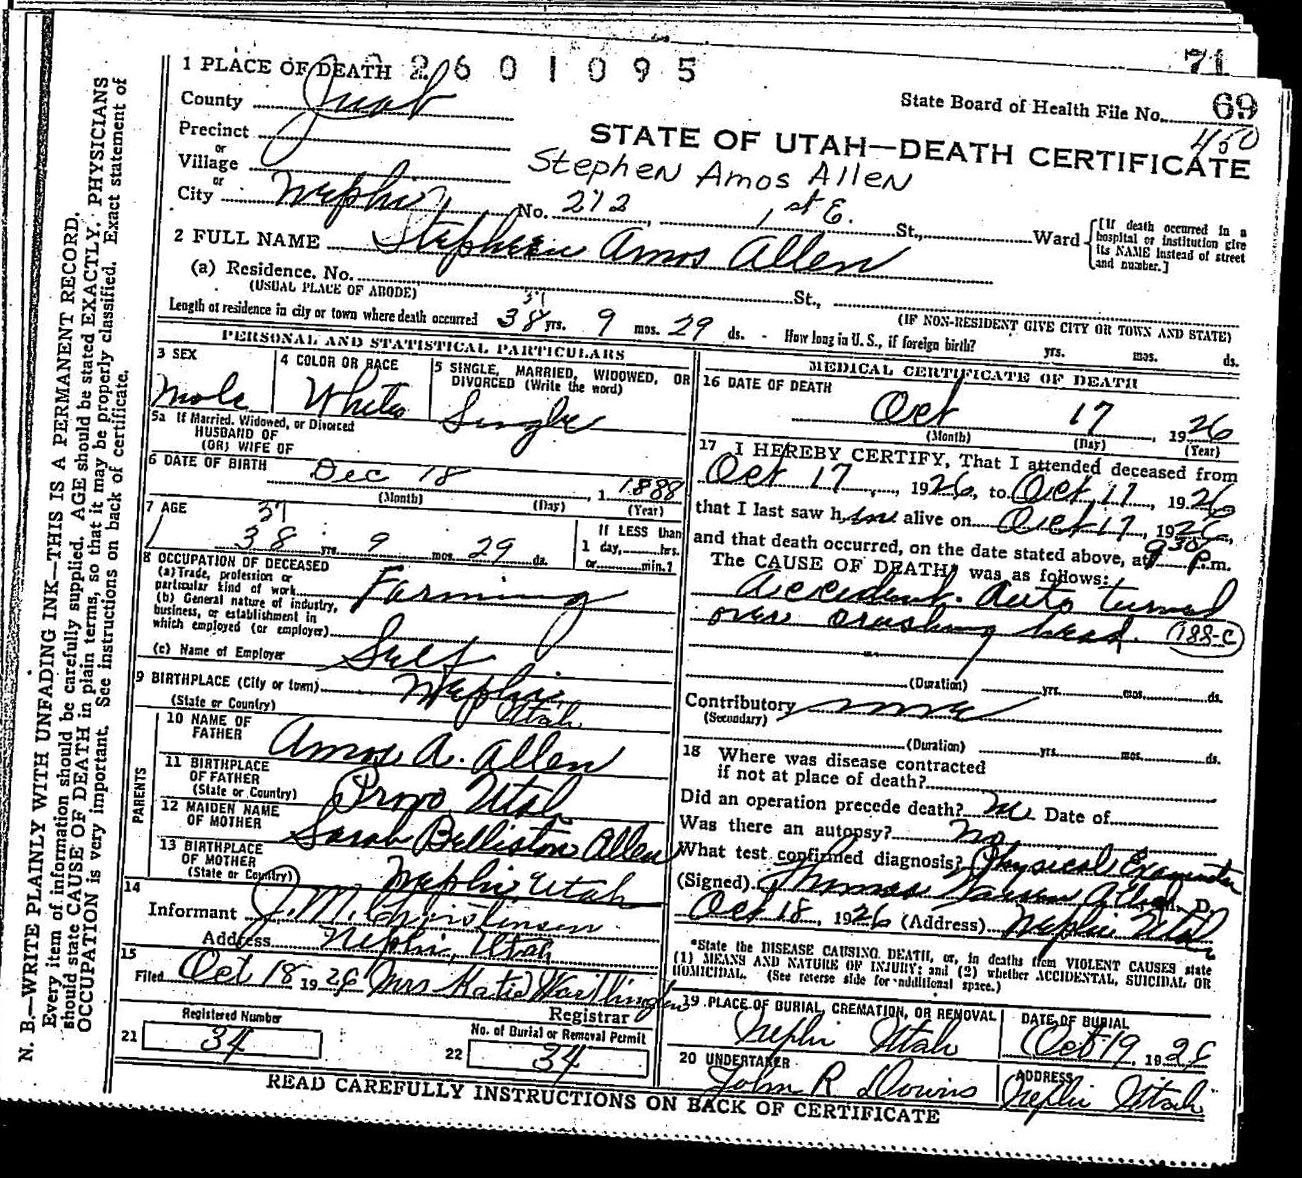 71
1 PLACE OF DEATH 2 6 0 1 0 9 5
State Board of Health File No. 69
450
County Juab
Precinct
or
Village
or
City Nephi No. 272, 1st E. St., Ward
[If death occurred in a hospital or institution give its NAME instead of street and number.]
STATE OF UTAH—DEATH CERTIFICATE
Stephen Amos Allen
2 FULL NAME Stepheen Amos Allen
(a) Residence. No. St.,
(USUAL PLACE OF ABODE)
(IF NON-RESIDENT GIVE CITY OR TOWN AND STATE)
37
Length of residence in city or town where death occurred 38 yrs. 9 mos. 29 ds. - How long in U. S., if foreign birth? yrs. mos. ds.
PERSONAL AND STATISTICAL PARTICULARS
3 SEX
Male
4 COLOR OR RACE
White
5 SINGLE, MARRIED, WIDOWED, OR DIVORCED (Write the word)
Single
5a If Married, Widowed, or Divorced
HUSBAND OF
(OR) WIFE OF
6 DATE OF BIRTH Dec 18, 1 1888
(Month) (Day) (Year)
7 AGE
37
38 yrs. 9 mos. 29 ds.
If LESS than
1 day, hrs.
or min.?
8 OCCUPATION OF DECEASED
(a) Trade, profession or
particular kind of work Farming
(b) General nature of industry,
business, or establishment in
which employed (or employer)
(c) Name of Employer Self
9 BIRTHPLACE (City or town) Nephi
(State or Country) Utah
PARENTS
10 NAME OF
FATHER Amos A. Allen
11 BIRTHPLACE
OF FATHER
(State or Country) Provo Utah
12 MAIDEN NAME
OF MOTHER Sarah Belliston Allen
13 BIRTHPLACE
OF MOTHER
(State or Country) Nephi, Utah
14
Informant J. M. Christensen
Address Nephi, Utah
15
Filed Oct 18 1926 Mrs Katie Worthington
Registrar
Registered Number
21 34
No. of Burial or Removal Permit
22 34
MEDICAL CERTIFICATE OF DEATH
16 DATE OF DEATH
Oct 17, 1926
(Month) (Day) (Year)
17 I HEREBY CERTIFY, That I attended deceased from
Oct 17, 1926, to Oct 17, 1926
that I last saw him alive on Oct 17, 1926,
and that death occurred, on the date stated above, at 930 P.m.
The CAUSE OF DEATH* was as follows:
Accident. Auto turned
over crushing head. 188-c
(Duration) yrs. mos. ds.
Contributory none
(Secondary)
(Duration) yrs. mos. ds.
18 Where was disease contracted
if not at place of death?
Did an operation precede death? no Date of
Was there an autopsy? No
What test confirmed diagnosis? Physical
(Signed) Thomas M. D.
Oct 18, 1926 (Address) Nephi Utah
*State the DISEASE CAUSING DEATH, or, in deaths from VIOLENT CAUSES state
(1) MEANS AND NATURE OF INJURY; and (2) whether ACCIDENTAL, SUICIDAL OR
HOMICIDAL. (See reverse side for additional space.)
19 PLACE OF BURIAL, CREMATION, OR REMOVAL
Nephi Utah
DATE OF BURIAL
Oct 19, 1926
20 UNDERTAKER
John R Downs
ADDRESS
Nephi Utah
READ CAREFULLY INSTRUCTIONS ON BACK OF CERTIFICATE
N. B.—WRITE PLAINLY WITH UNFADING INK—THIS IS A PERMANENT RECORD.
Every item of information should be carefully supplied. AGE should be stated EXACTLY. PHYSICIANS
should state CAUSE OF DEATH in plain terms, so that it may be properly classified. Exact statement of
OCCUPATION is very important. See instructions on back of certificate.